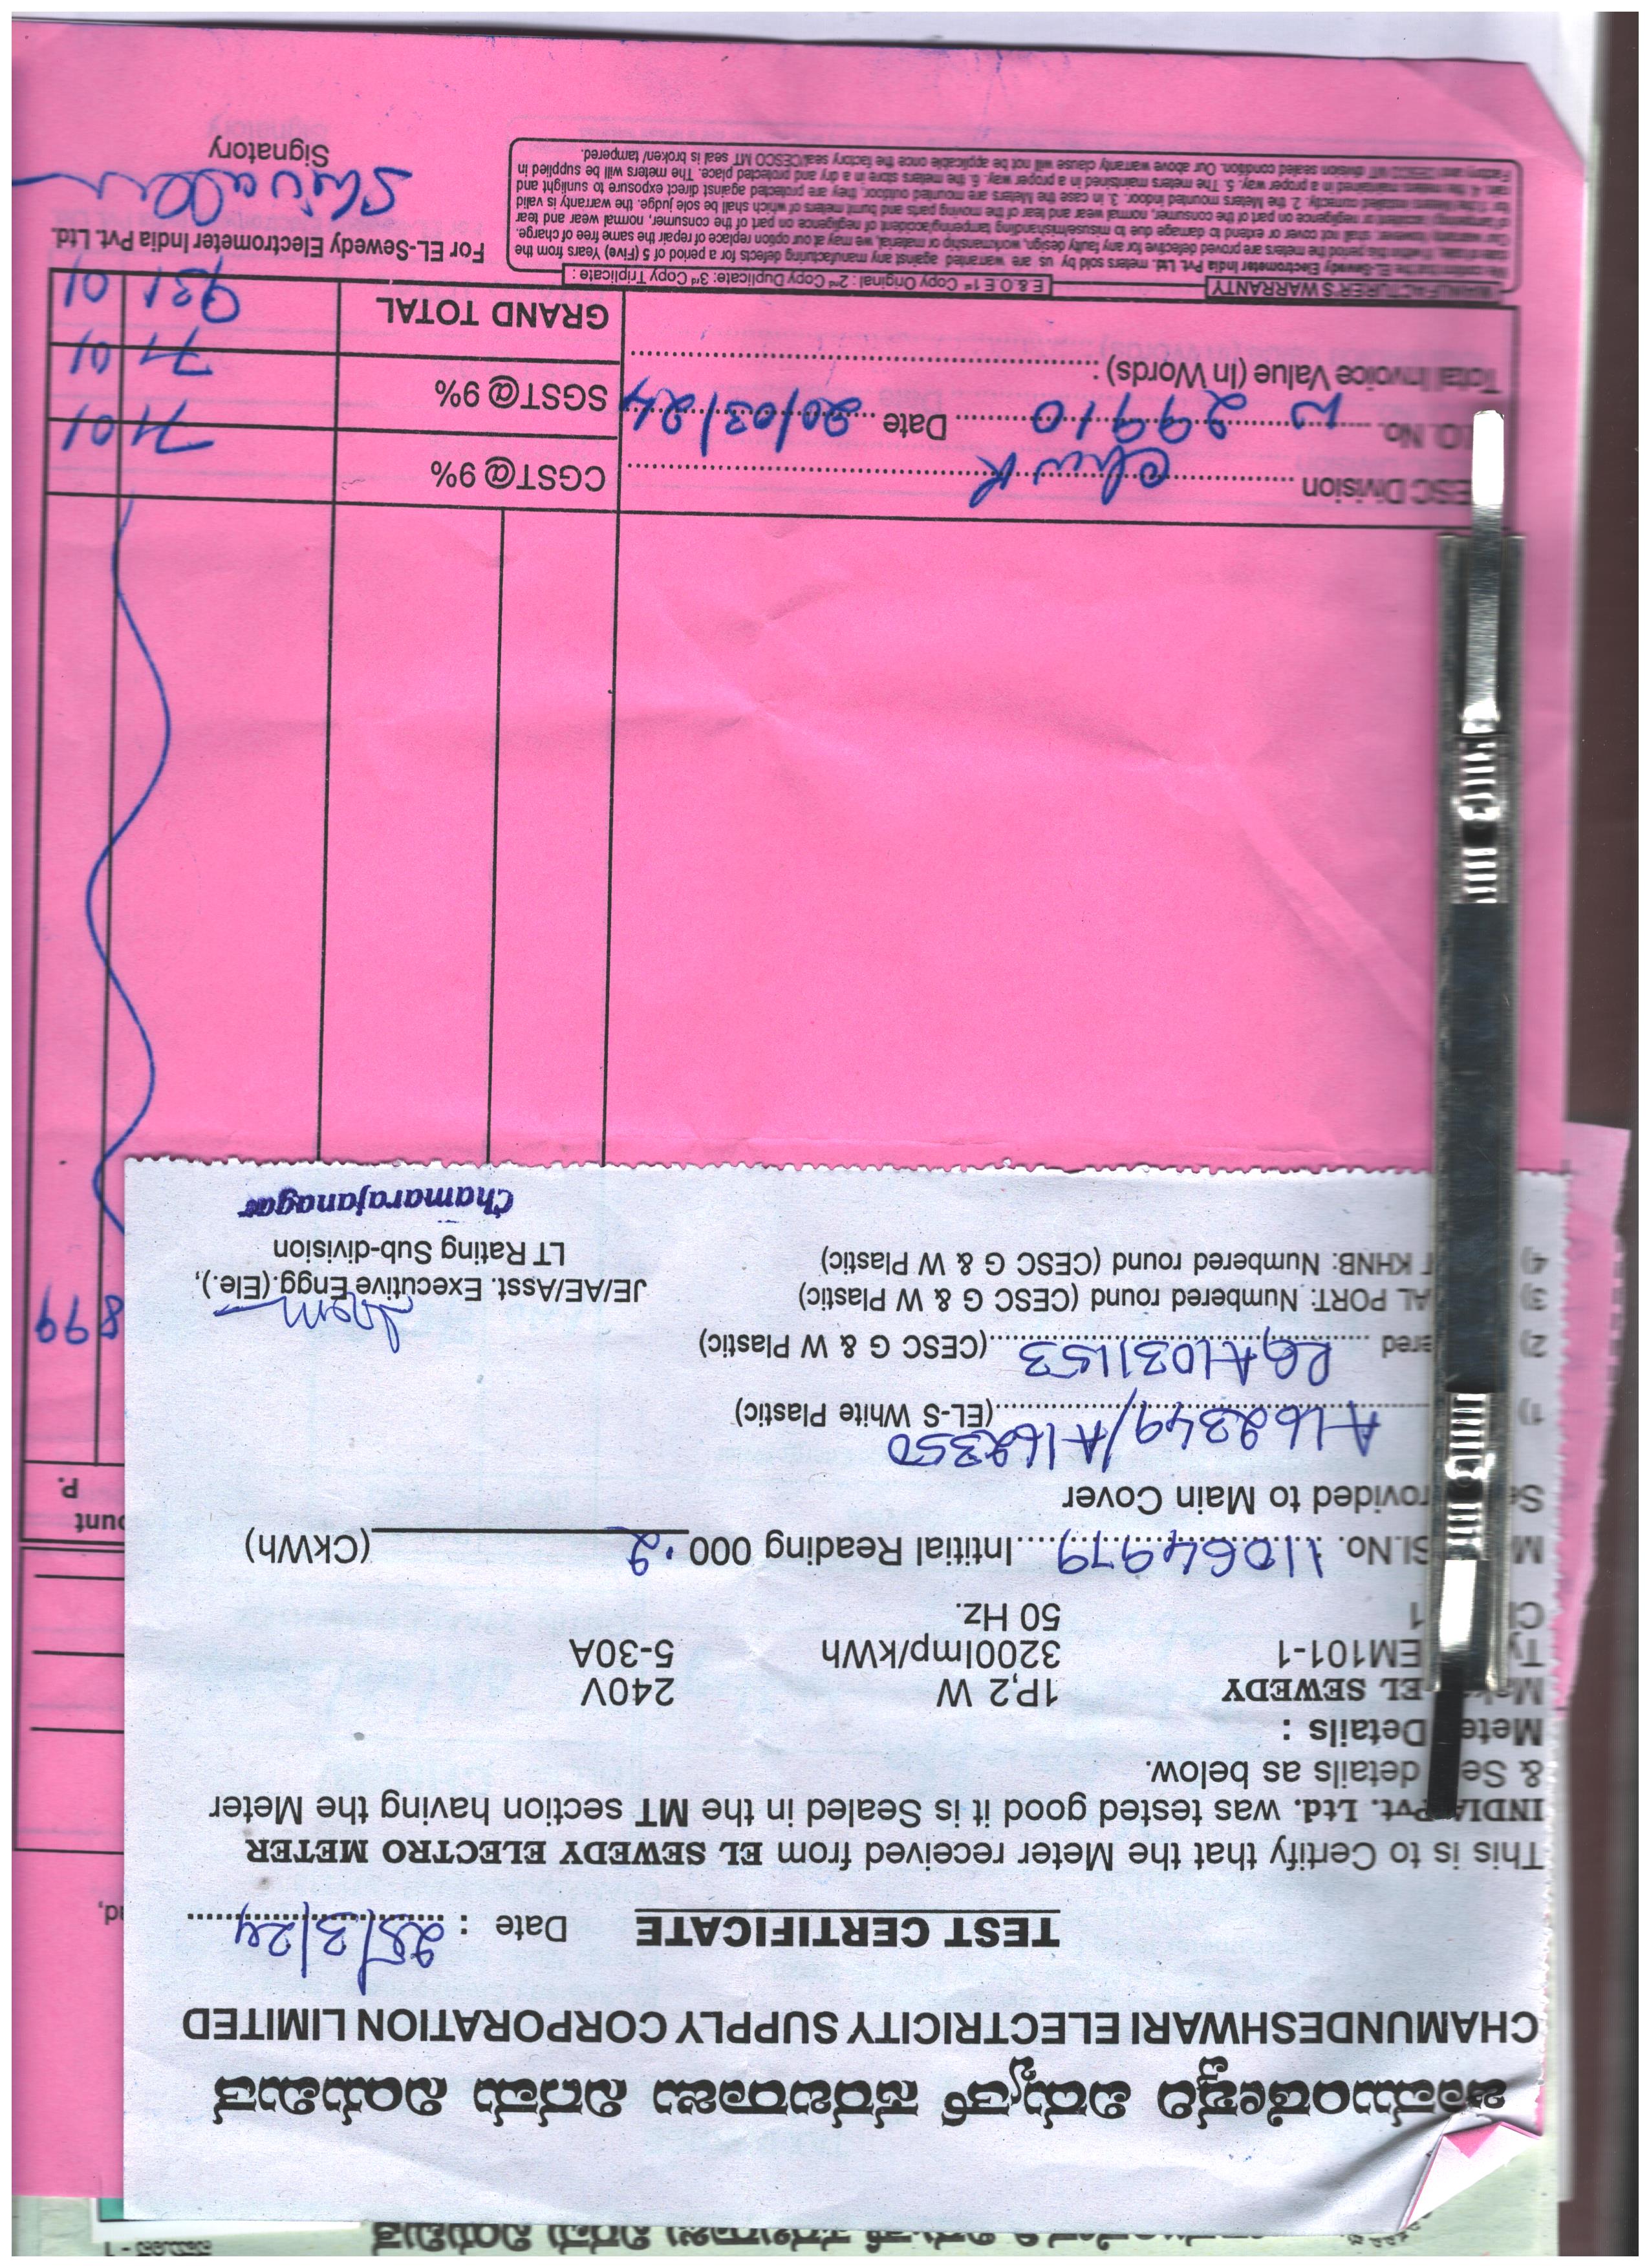 ಚಾಮುಂಡೇಶ್ವರಿ ವಿದ್ಯುತ್ ಸರಬರಾಜು ನಿಗಮ ನಿಯಮಿತ
CHAMUNDESHWARI ELECTRICITY SUPPLY CORPORATION LIMITED
TEST CERTIFICATE Date : 25/3/24
This is to Certify that the Meter received from EL SEWEDY ELECTRO METER
INDIA Pvt. Ltd. was tested good it is Sealed in the MT section having the Meter
& Se details as below.
Mete Details :
EL SEWEDY 1P,2 W 240V
Ty EM101-1 3200Imp/kWh 5-30A
1 50 Hz.
Sl.No. 11064979 Intitial Reading 000.2 (CkWh)
Se rovided to Main Cover
1) A162349/A162350 (EL-S White Plastic)
2) ered RGA1031153 (CESC G & W Plastic)
3) AL PORT: Numbered round (CESC G & W Plastic)
4) T KHNB: Numbered round (CESC G & W Plastic)
JE/AE/Asst. Executive Engg.(Ele.),
LT Rating Sub-division
Chamarajanagar
ount
P.
899
ESC Division
CGST@ 9% 71 01
No. 2910 Date 20/03/24
SGST@ 9% 71 01
Total Invoice Value (In Words) :
GRAND TOTAL 931 01
MANUFACTURER'S WARRANTY
E & O.E 1st Copy Original : 2nd Copy Duplicate: 3rd Copy Triplicate :
the EL-Sewedy Electrometer India Pvt. Ltd. meters sold by us are warranted against any manufacturing defects for a period of 5 (Five) Years from the
this period the meters are proved defective for any faulty design, workmanship or material, we may at our option replace of repair the same free of charge.
Our warranty however, shall not cover or extend to damage due to misuse/mishandling tampering/accident of negligence on part of the consumer, normal wear and tear
or negligence on part of the consumer, normal wear and tear of the moving parts and burnt meters of which shall be sole judge. the warranty is valid
for. 1.the Meters installed correctly. 2. the Meters mounted indoor. 3. in case the Meters are mounted outdoor, they are protected against direct exposure to sunlight and
rain. 4. the meters maintained in a proper way. 5. The meters maintsined in a proper way. 6. the meters store in a dry and protected place. The meters will be supplied in
Factory and CESCO MT division sealed condition. Our above warranty clause will not be applicable once the factory seal/CESCO MT seal is broken/ tampered.
For EL-Sewedy Electrometer India Pvt. Ltd.
Signatory